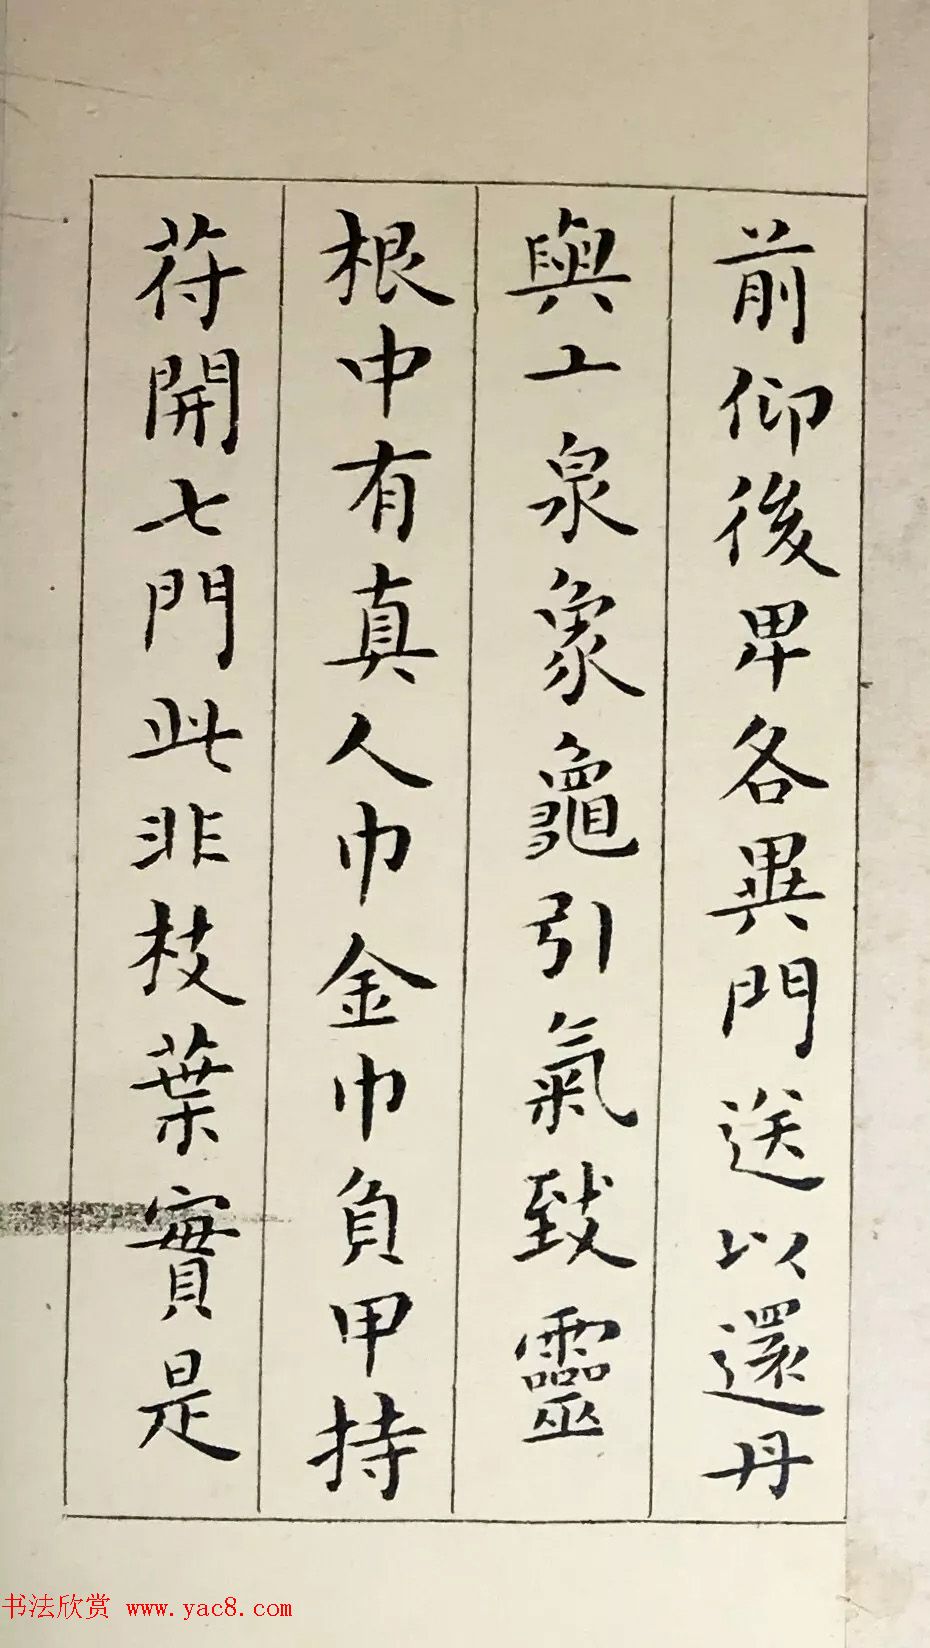 前仰後卑各異門送以還丹
與𤣥泉象龜引氣致靈
根中有真人巾金巾負甲持
苻開七門此非枝葉實是
书法欣赏 www.yac8.com